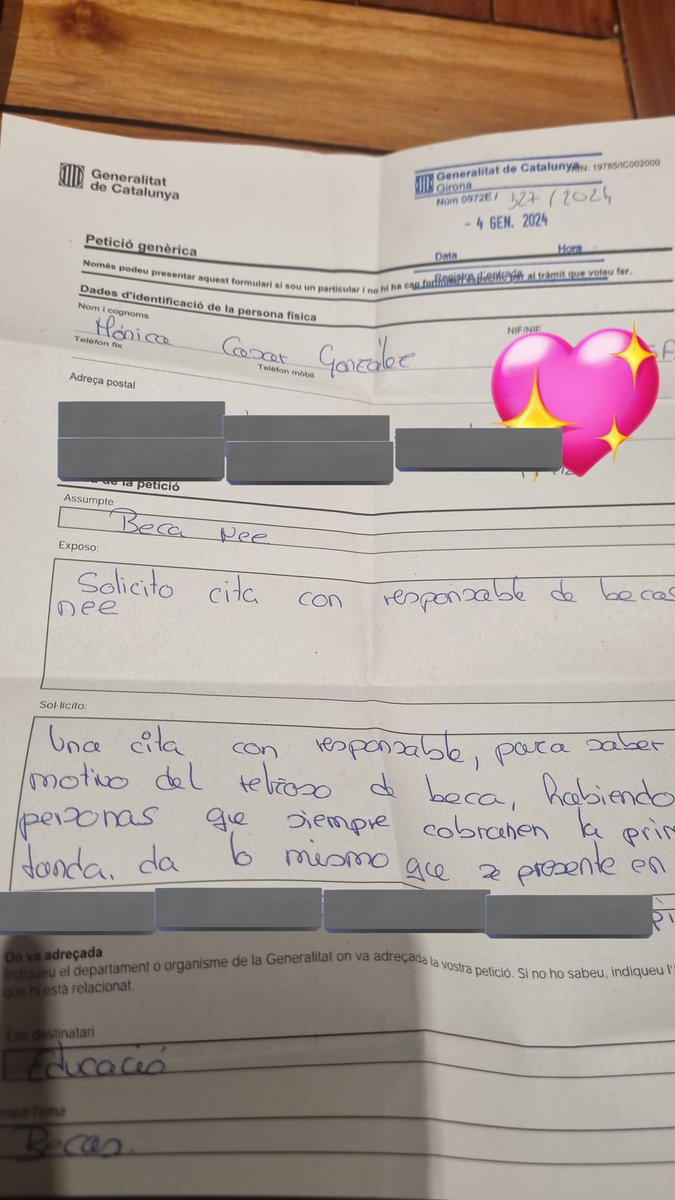 Generalitat
de Catalunya
Generalitat de Catalunya
Girona
Núm 0972E / 327 / 2024
- 4 GEN. 2024
Data Hora
Registre d'entrada
19785/IC002000
Petició genèrica
Només podeu presentar aquest formulari si sou un particular i no hi ha cap formulari específic per al tràmit que voleu fer.
Dades d'identificació de la persona física
Nom i cognoms
NIF/NIE
Mónica González
Telèfon fix
Telèfon mòbil
Adreça postal
de la petició
Assumpte
Beca nee
Exposo:
Solicito cita con responsable de becas
nee
Sol·licito:
Una cita con responsable, para saber
motivo del de beca, habiendo
personas que siempre cobran en la
tanda. da lo mismo que se presente en
On va adreçada
Indiqueu el departament o organisme de la Generalitat on va adreçada la vostra petició. Si no ho sabeu, indiqueu
que hi està relacionat.
Ens destinatari
Educació
Becas.